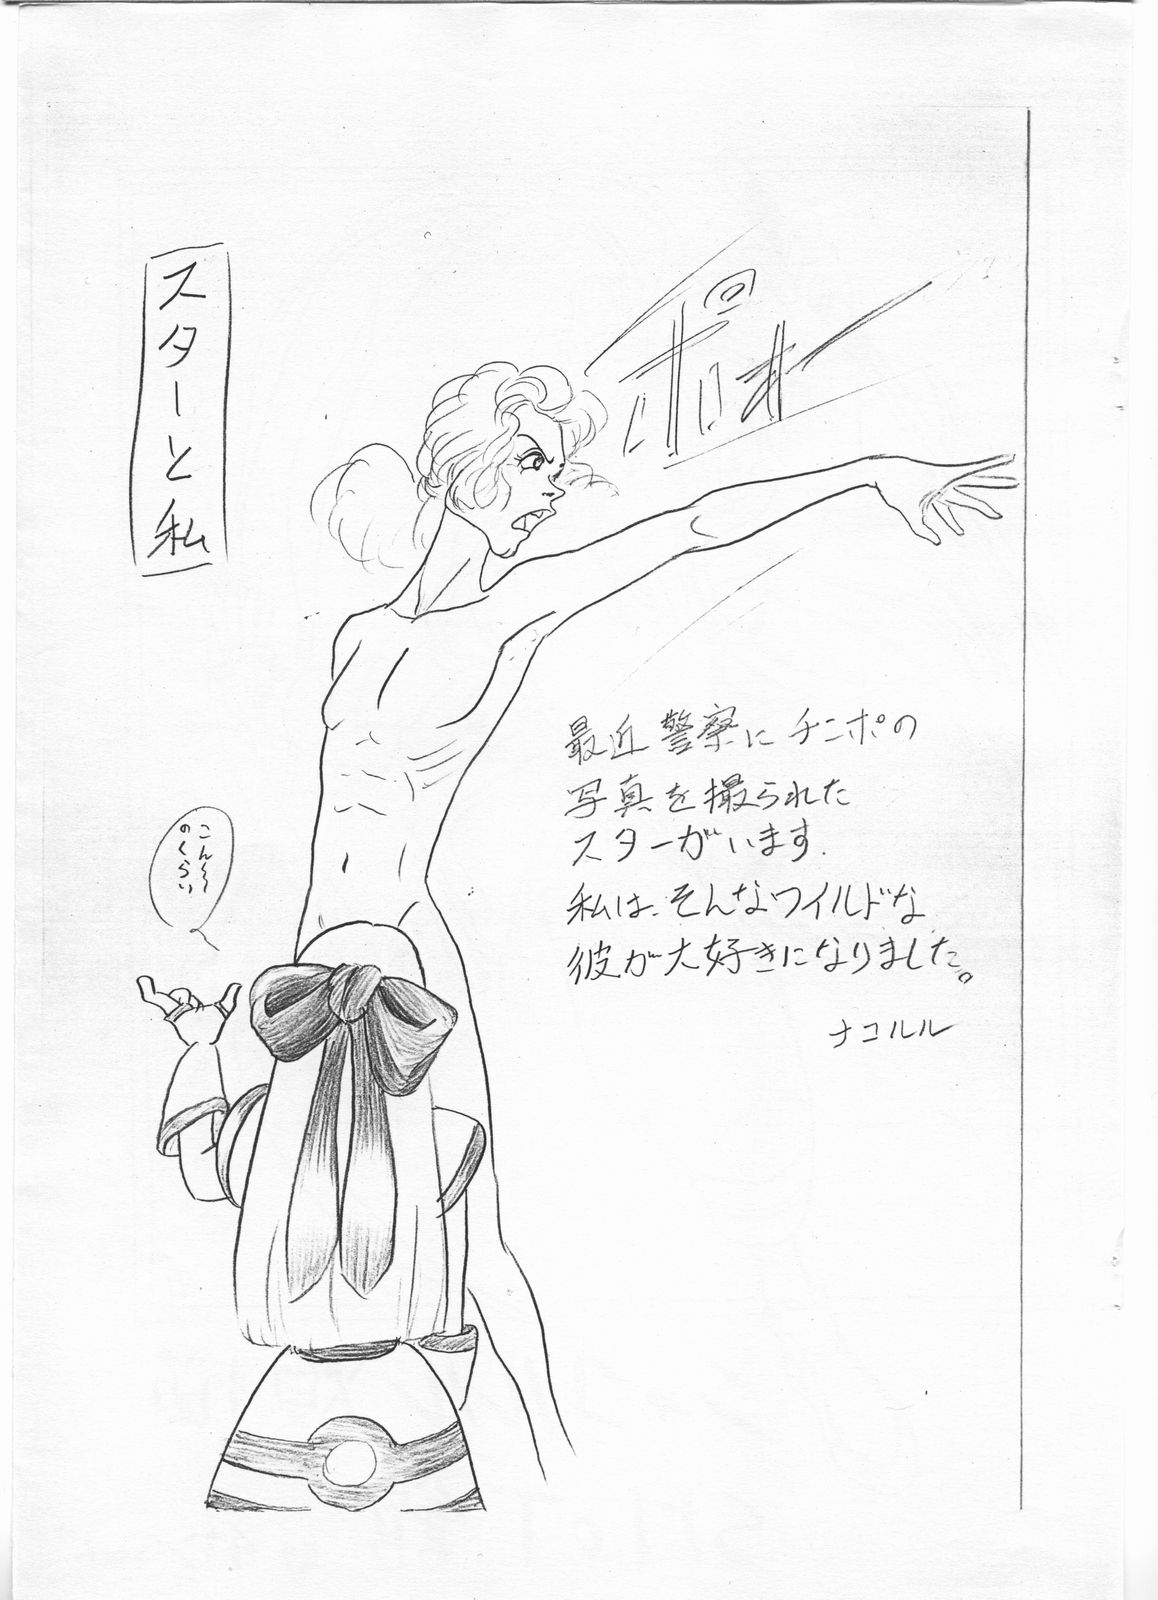 スターと私
ぽいぉー
最近警察にチンポの
写真を撮られた
スターがいます.
私は、そんなワイルドな
彼が大好きになりました。
ナコルル
こん〜〜
のくらい